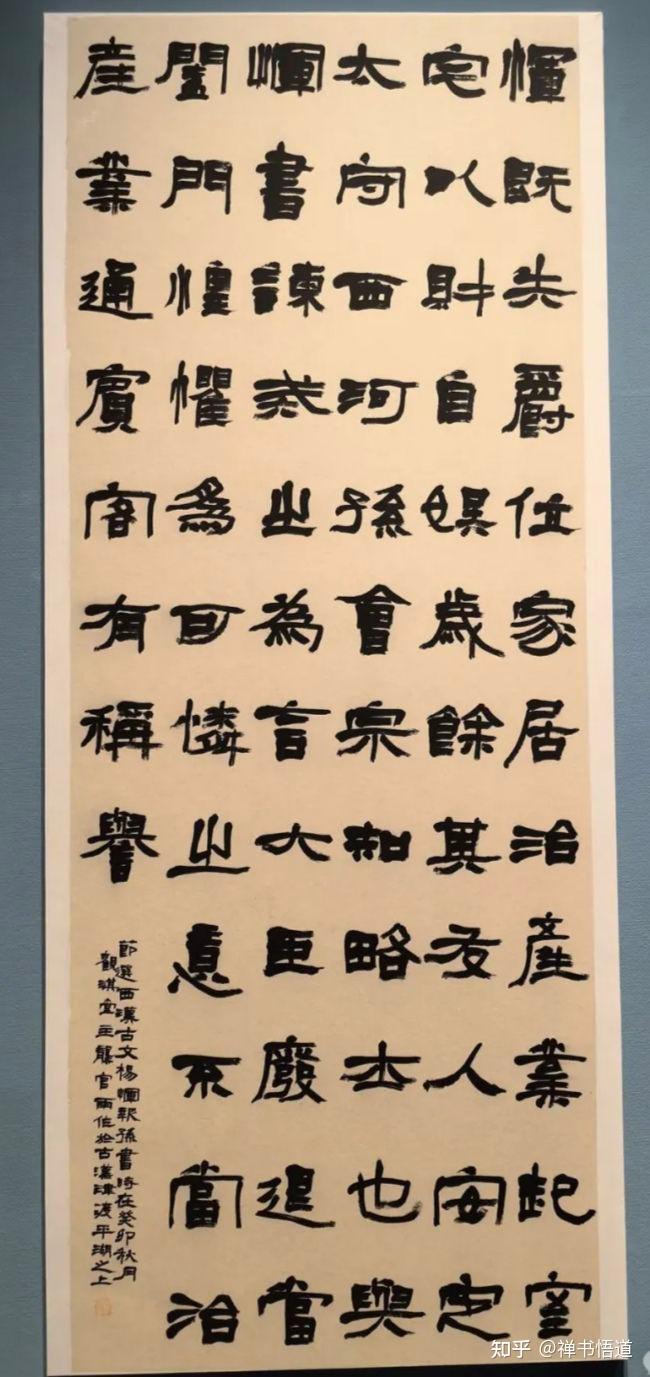 惲既失爵位家居治產業起室
宅以財自娛歲餘其友人安定
太守西河孫會宗知略士也與
惲書諫戒之為言大臣廢退當
闔門惶懼為可憐之意不當治
産業通賓客有稱譽
節選西漢古文楊惲報孫書時在癸卯秋月
觀淇宣主龔官雨作於古漢津渡平湖之上
知乎 @禅书悟道